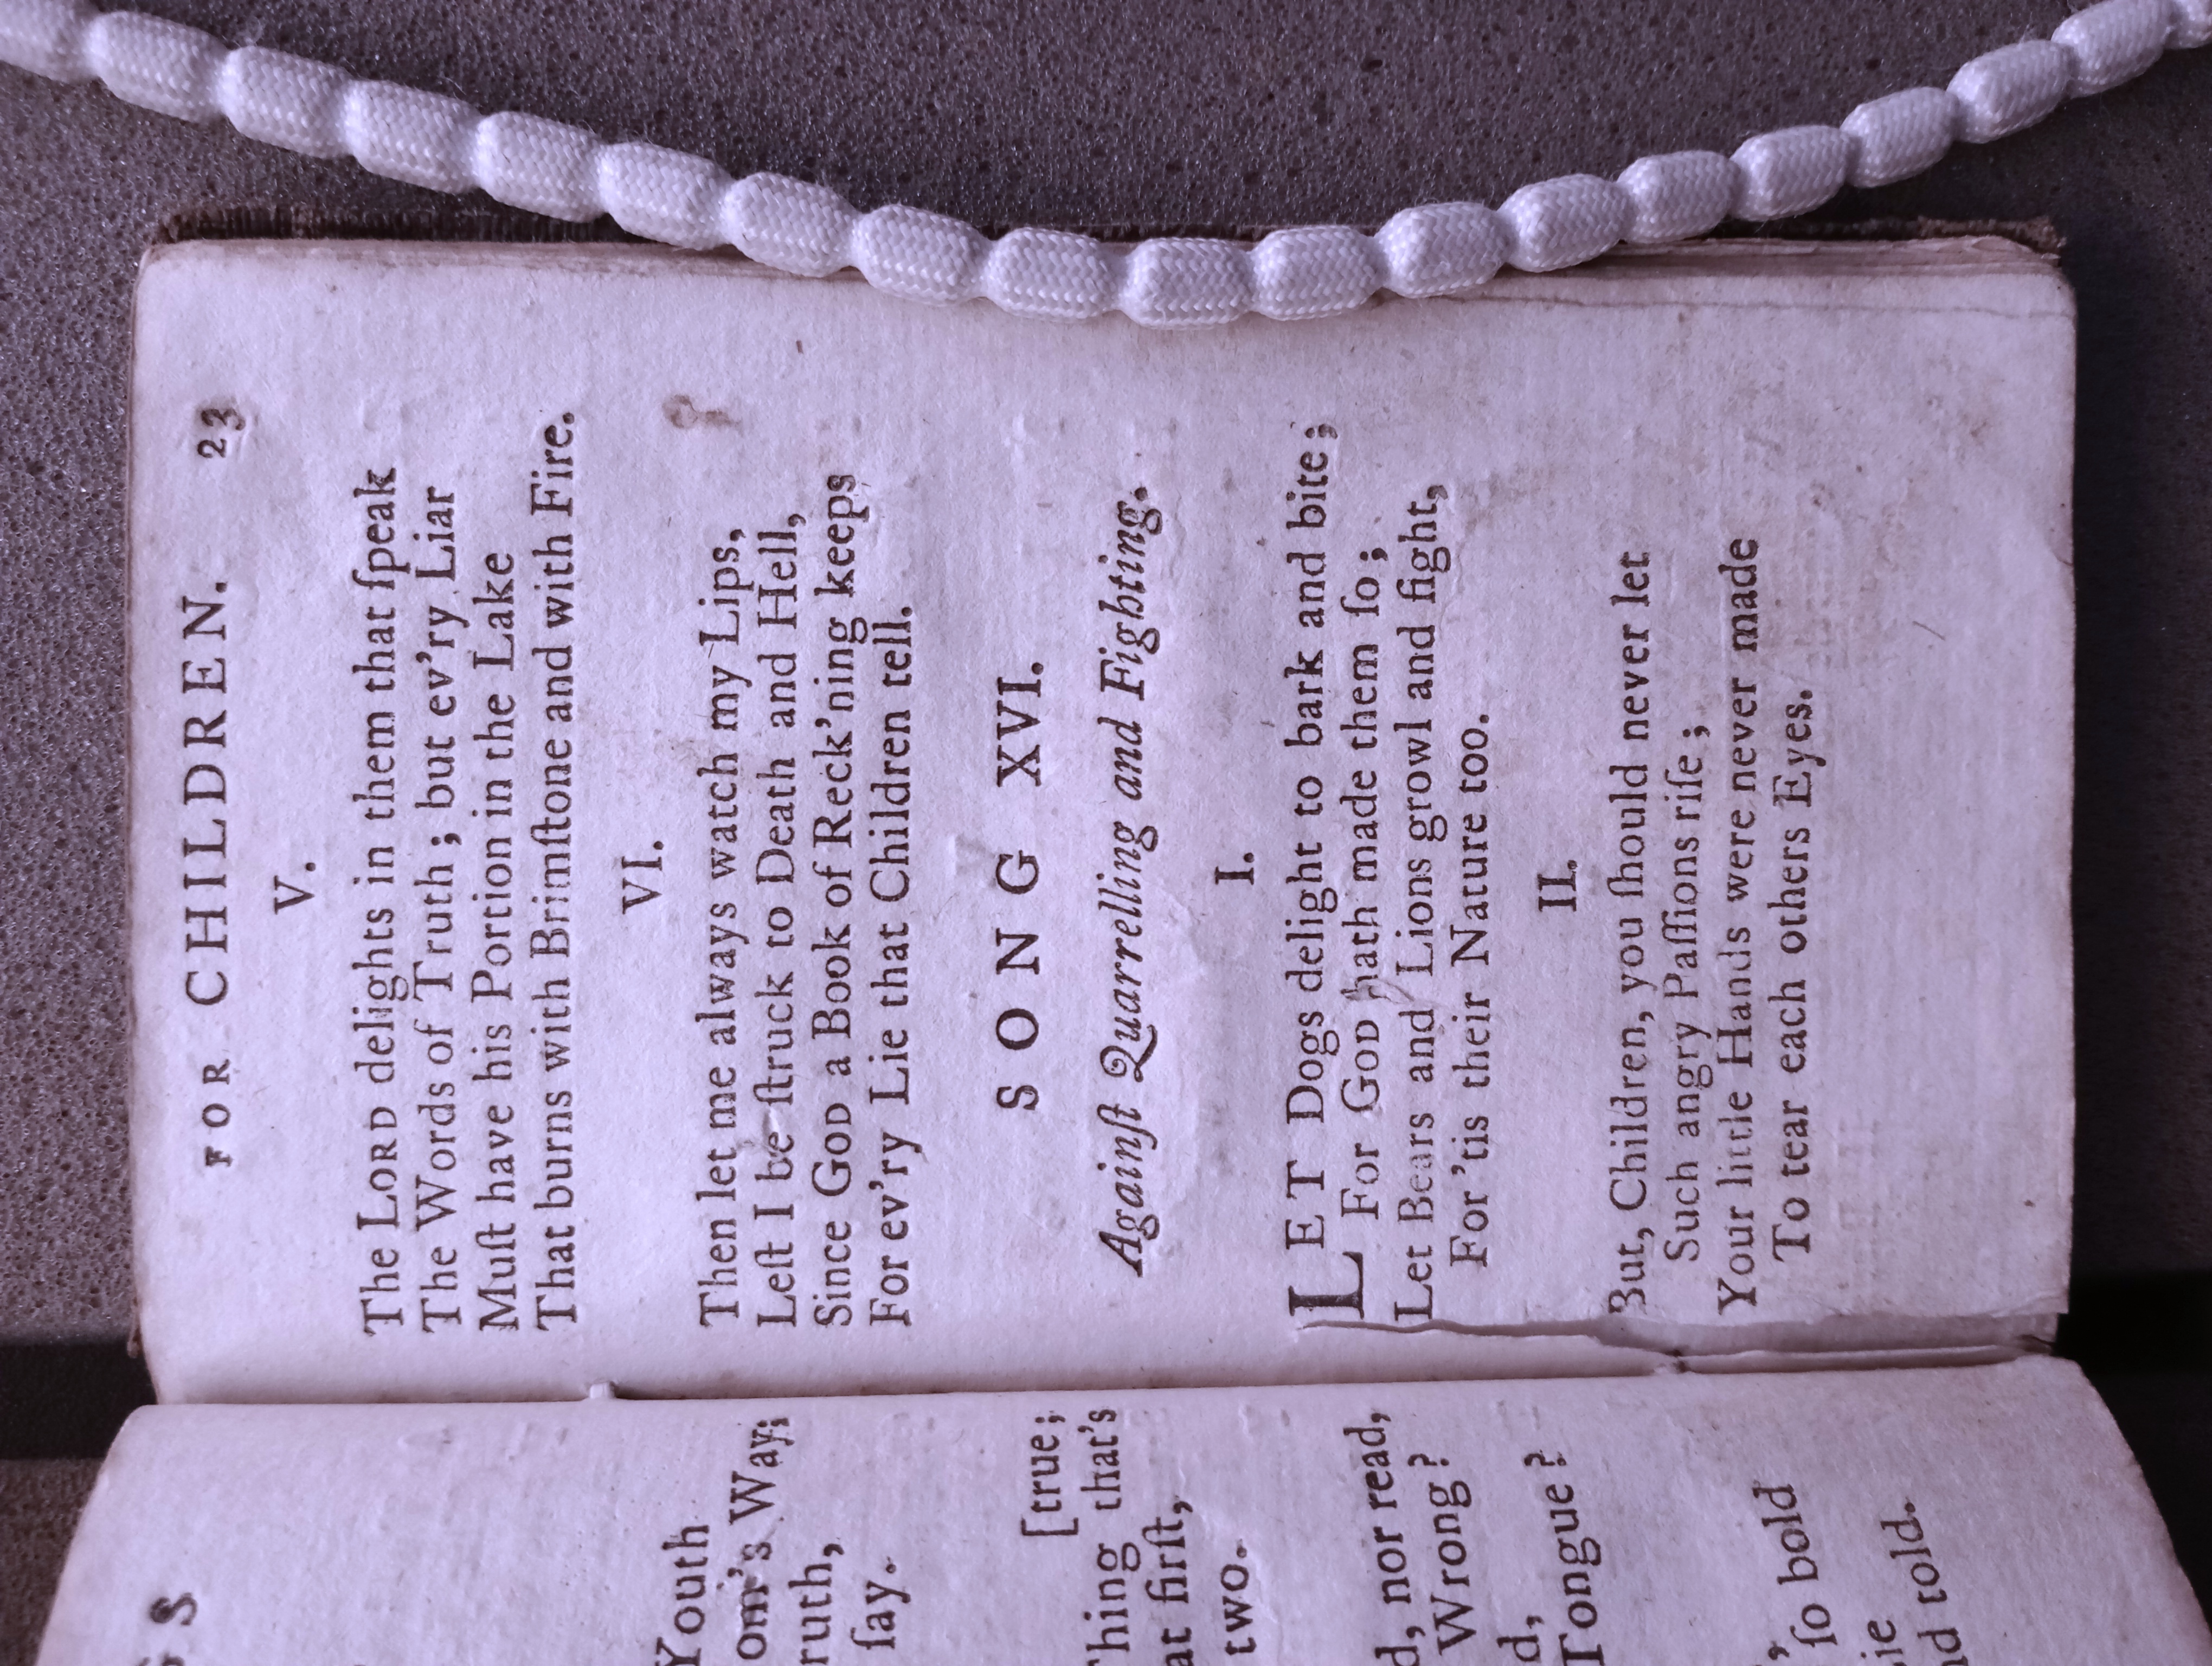 GS
Youth
om's Way;
ruth,
ſay.
[true;
Thing that's
at firſt,
two.
d, nor read,
Wrong?
d,
Tongue?
ſo bold
told.
FOR CHILDREN. 23
V.
The LORD delights in them that ſpeak
The Words of Truth; but ev'ry Liar
Muſt have his Portion in the Lake
That burns with Brimſtone and with Fire.
VI.
Then let me always watch my Lips,
Leſt I be ſtruck to Death and Hell,
Since GOD a Book of Reck'ning keeps
For ev'ry Lie that Children tell.
SONG XVI.
Againſt Quarrelling and Fighting.
I.
LET Dogs delight to bark and bite;
For GOD hath made them ſo;
Let Bears and Lions growl and fight,
For 'tis their Nature too.
II.
But, Children, you ſhould never let
Such angry Paſſions riſe;
Your little Hands were never made
To tear each others Eyes.